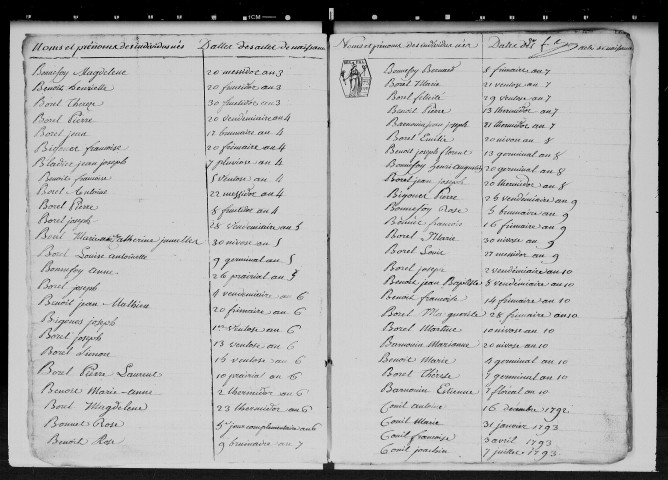 Noms et prénoms des individus nés Dattes des actes de naissance
Bonnefoy Magdelene 20 messidor an 3
Benoit henriette 20 fructidor an 3
Borel Therese 30 fructidor an 3
Borel Pierre 20 vendémiaire an 4
Borel jean 17 brumaire an 4
Bigonet françoise 20 frimaire an 4
Blachier jean joseph 7 pluviose an 4
Benoit françoise 8 ventose an 4
Borel Antoine 22 messidor an 4
Borel Pierre 8 fructidor an 4
Borel joseph 28 Vendémiaire an 5
Borel Catherine jumelles 30 nivose an 5
Borel Louise antoinette 9 germinal an 5
Bonnefoy anne 26 prairial an 5
Borel joseph 4 vendémiaire an 6
Benoit jean Mathieu 20 frimaire an 6
Bigonet joseph 1er Ventose an 6
Borel joseph 13 ventose an 6
Borel Simon 15 ventose an 6
Borel Pierre Laurent 10 prairial an 6
Benoit Marie-anne 2 thermidor an 6
Borel Magdelene 23 thermidor an 6
Bonnet Rose 5e jour complémentaire an 6
Benoit Rose 9 brumaire an 7
Noms et prénoms des individus nés Dates des actes de naissance
Bonnefoy Bernard 8 frimaire an 7
Borel Marie 21 ventose an 7
Borel felicité 29 ventose an 7
Benoit Pierre 13 thermidor an 7
Barnouin jean joseph 21 thermidor an 7
Borel Emilie 20 nivose an 8
Benoit joseph florent 13 germinal an 8
Bonnefoy henri augustin 20 germinal an 8
Borel jean joseph 20 thermidor an 8
Bigonet Pierre 25 vendémiaire an 9
Bonnefoy Rose 5 brumaire an 9
Benoit françois 16 frimaire an 9
Borel Marie 30 nivose an 9
Borel Louis 27 messidor an 9
Borel joseph 2 vendémiaire an 10
Benoit jean Baptiste 8 vendémiaire an 10
Benoit françoise 14 frimaire an 10
Borel Margueritte 28 frimaire an 10
Borel Martine 10 nivose an 10
Barnouin Marianne 20 nivose an 10
Benoit Marie 4 germinal an 10
Borel Thérèse 7 germinal an 10
Barnouin Estienne 7 floréal an 10
Conil antoine 16 decembre 1792
Conil Marie 31 janvier 1793
Conil françoise 3 avril 1793
Conil 7 juillet 1793